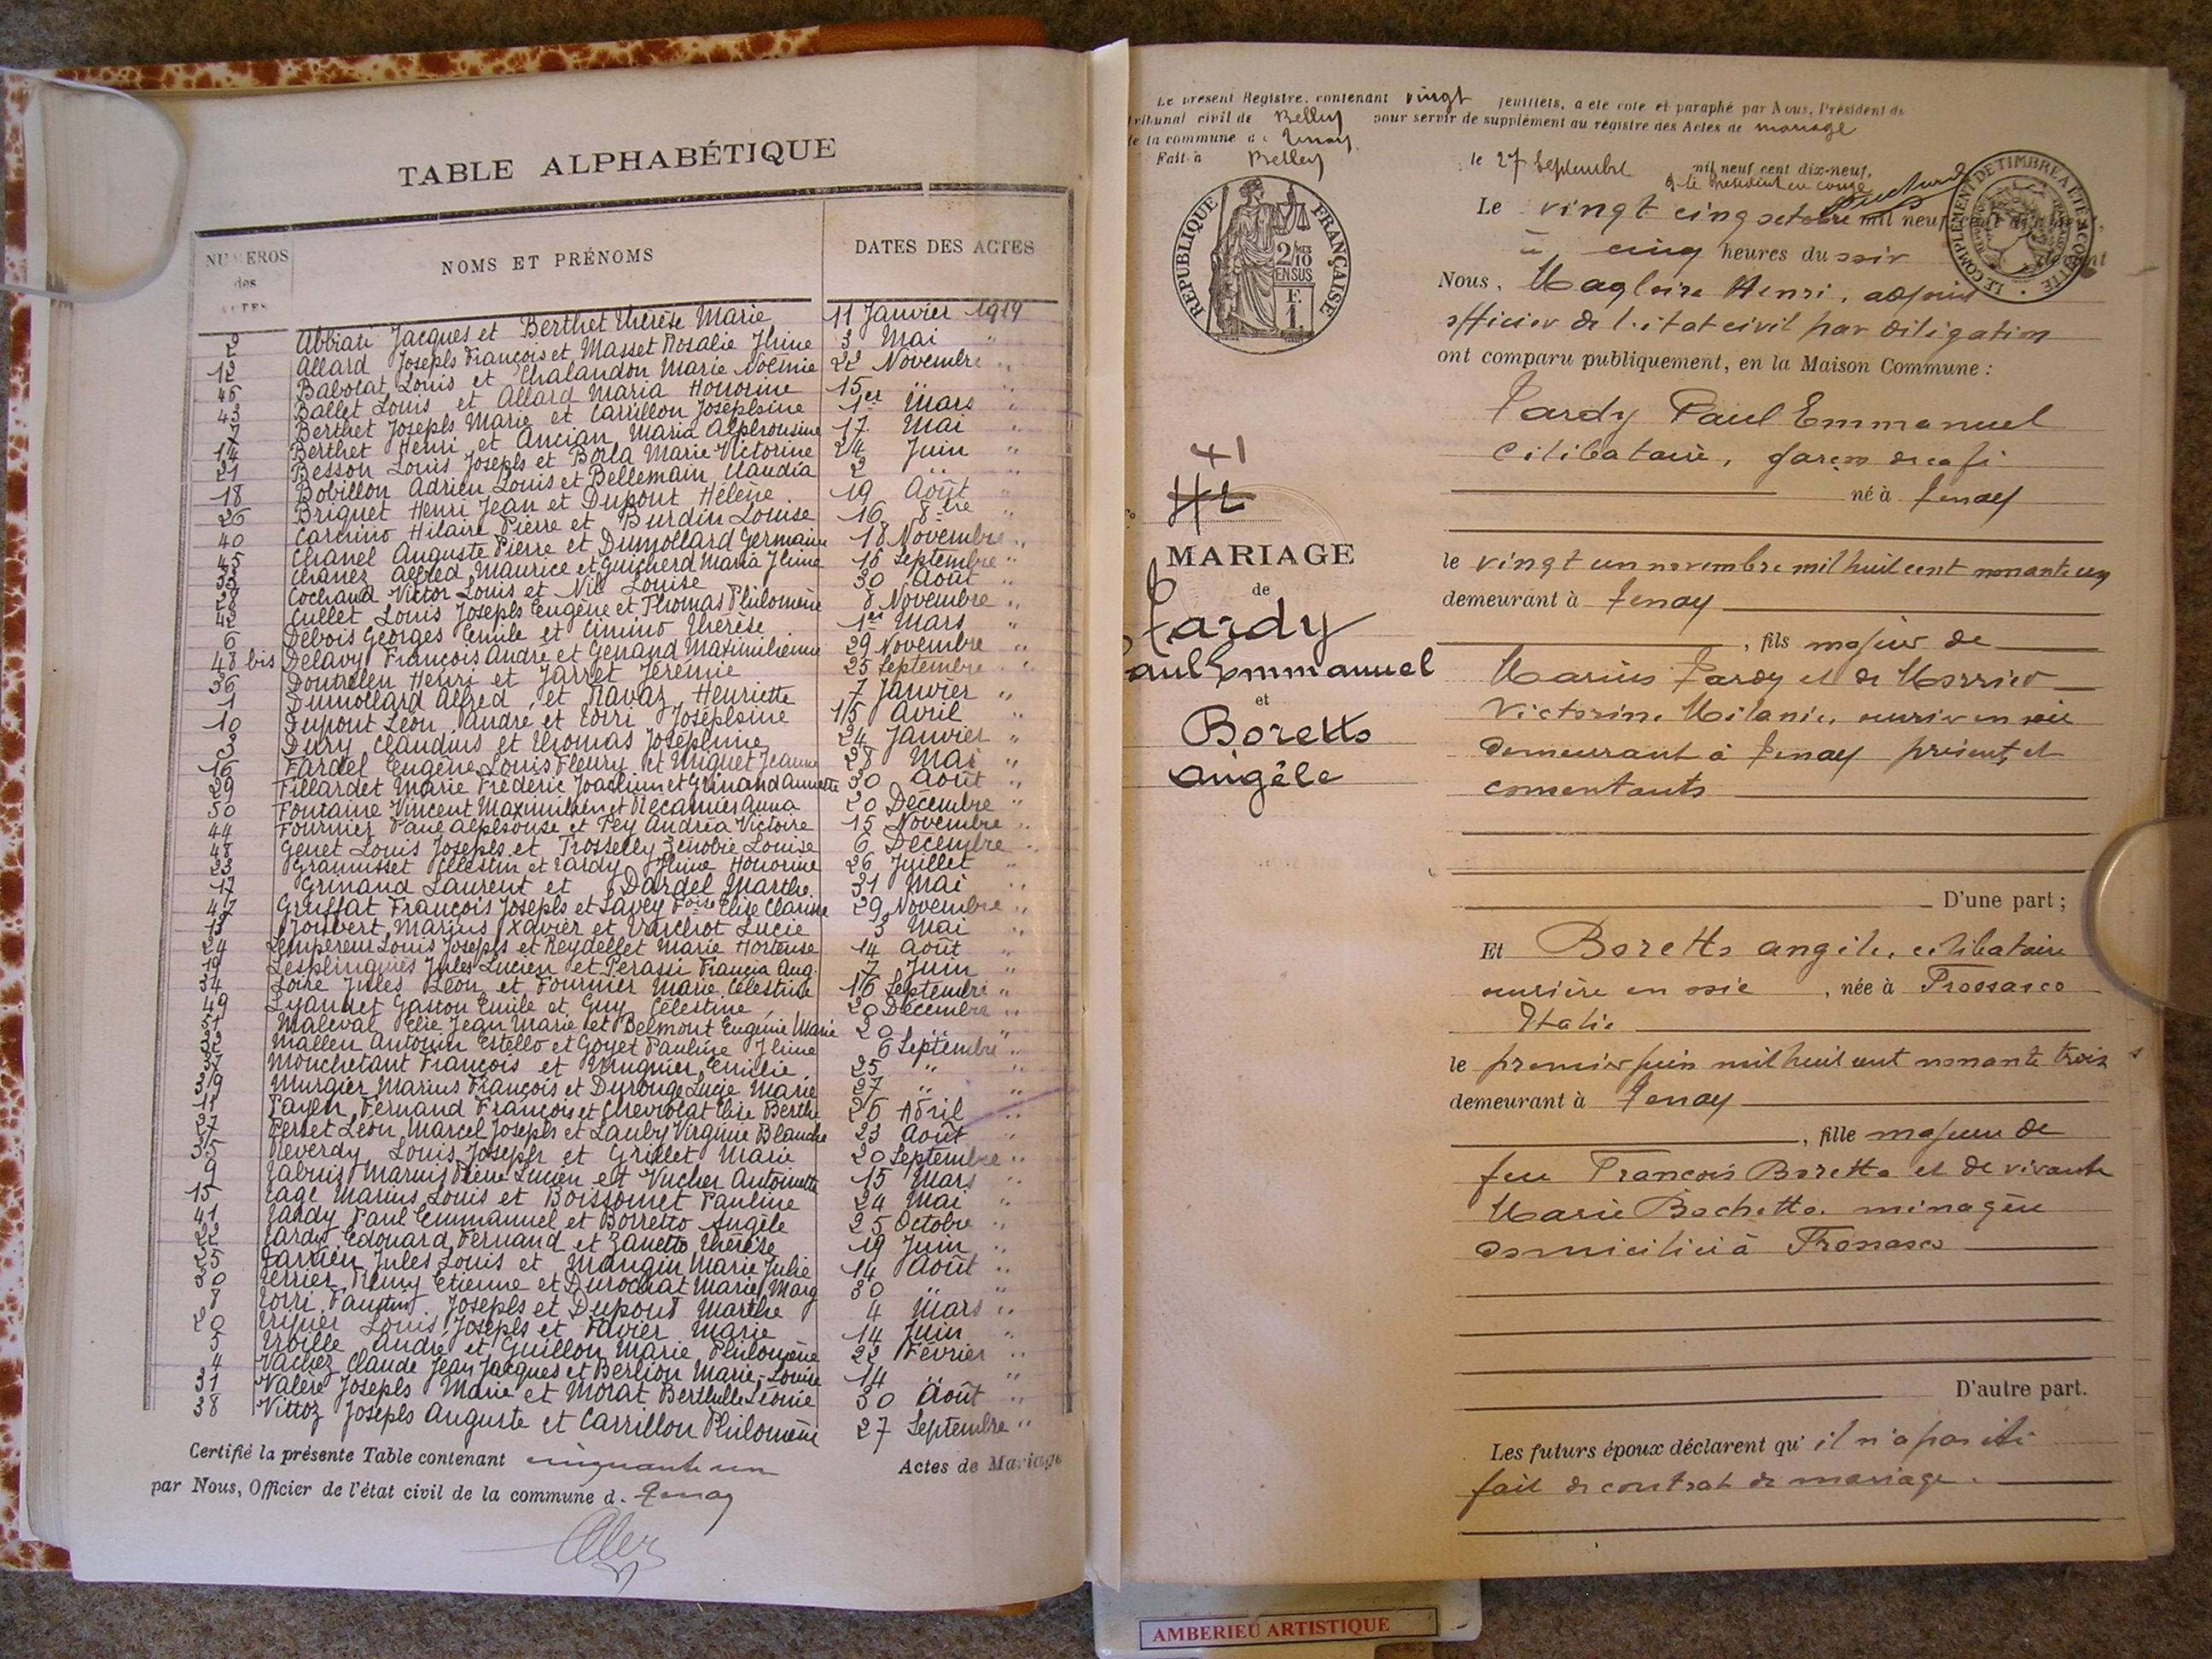 TABLE ALPHABÉTIQUE
NUMEROS des ACTES
NOMS ET PRÉNOMS
DATES DES ACTES
2 Abbiati Jacques et Berthet Thérèse Marie 11 Janvier 1919
12 Allard Joseph François et Masset Rosalie Jhine 3 Mai "
46 Babolat Louis et Chalandon Marie Noémie 22 Novembre "
43 Ballet Louis et Allard Maria Honorine 15 " "
7 Berthet Joseph Marie et Carrillon Joséphine 1er Mars "
14 Berthet Henri et Ancian Maria Alphonsine 17 Mai "
21 Besson Louis Joseph et Borla Marie Victorine 24 Juin "
18 Bobillon Adrien Louis et Bellemain Claudia 2 " "
26 Briguet Henri Jean et Dupont Hélène 19 Août "
40 Carmino Hilaire Pierre et Burdin Louise 16 8bre "
45 Chanel Auguste Pierre et Dumollard Germaine 18 Novembre "
33 Chanez Alfred Maurice et Guicherd Maria Jhine 16 Septembre "
28 Cochaud Victor Louis et Nil Louise 30 Août "
42 Cullet Louis Joseph Eugène et Thomas Philomène 8 Novembre "
6 Debois Georges Emile et Cimino Thérèse 1er Mars "
48 bis Delavy François André et Genand Maximilienne 29 Novembre "
36 Dontrelen Henri et Jarret Jérémie 25 Septembre "
1 Dumollard Alfred, et Ravaz Henriette 7 Janvier "
10 Dupont Léon André et Loiri Joséphine 15 Avril "
3 Dury Claudius et Thomas Joséphine 24 Janvier "
16 Fardel Eugène Louis Fleury et Muguet Jeanne 28 Mai "
29 Fillardet Marie Frédéric Joachim et Grinand Annette 30 Août "
50 Fontaine Vincent Maximilien et Récamier Anna 20 Décembre "
44 Fournier Paul Alphonse et Pey Andréa Victoire 15 Novembre "
48 Genet Louis Joseph et Trosselly Zénobie Louise 6 Décembre "
23 Gramusset Célestin et Tardy Jhine Honorine 26 Juillet "
17 Grinand Laurent et Dardel Marthe 31 Mai "
47 Gruffat François Joseph et Savey Foise Elise Clarisse 29 Novembre "
13 Joubert Marius Xavier et Truchot Lucie 3 Mai "
24 Lempereur Louis Joseph et Reydellet Marie Hortense 14 Août "
19 Lesplinguies Jules Lucien et Perassi Francia Aug. 7 Juin "
34 Loire Jules Léon et Fournier Marie Célestine 16 Septembre "
49 Lyaudet Gaston Emile et Guy Célestine 20 Décembre "
51 Maleval Elie Jean Marie et Belmont Eugénie Marie 20 " "
32 Mallen Antonin Estello et Goyet Pauline Jhine 6 Septembre "
37 Mouchetant François et Mugnier Emilie 25 " "
39 Murgier Marius François et Durouge Lucie Marie 27 " "
11 Payen Fernand François et Chevrolat Elise Berthe 26 Avril "
27 Perset Léon Marcel Joseph et Lauby Virginie Blanche 23 Août "
35 Reverdy Louis Joseph et Grillet Marie 20 Septembre "
9 Tabruis Marius Pierre Lucien et Vucher Antoinette 15 Mars "
15 Tage Marius Louis et Boissonnet Pauline 24 Mai "
41 Tardy Paul Emmanuel et Borretto Angèle 25 Octobre "
22 Tardy Edouard Fernand et Zanetto Thérèse 19 Juin "
25 Tarrien Jules Louis et Mangin Marie Julie 14 Août "
30 Terrier Rémy Etienne et Durochat Marie Marg 30 " "
8 Toiri Faustin Joseph et Dupont Marthe 4 Mars "
20 Triquer Louis Joseph et Favier Marie 14 Juin "
5 Troille André et Guillon Marie Philomène 22 Février "
4 Vachez Claude Jean Jacques et Berlion Marie-Louise 14 " "
31 Valère Joseph Marie et Morat Berthille Léonie 30 Août "
38 Vittoz Joseph Auguste et Carrillon Philomène 27 Septembre "
Certifié la présente Table contenant cinquante un Actes de Mariage
par Nous, Officier de l'état civil de la commune d. Tenay
Le présent Registre, contenant vingt feuillets, a été coté et paraphé par Nous, Président du
tribunal civil de Belley pour servir de supplément au registre des Actes de mariage
de la commune de Tenay
Fait à Belley le 27 Septembre mil neuf cent dix-neuf.
P. le Président en congé
RÉPUBLIQUE FRANÇAISE
2/10 EN SUS
F. 1.
LE COMPLÉMENT DE TIMBRE A ÉTÉ ACQUITTÉ
Le vingt cinq octobre mil neuf cent dix neuf,
à cinq heures du soir devant
Nous, Magloire Henri, adjoint
officier de l'état civil par délégation
ont comparu publiquement, en la Maison Commune :
Tardy Paul Emmanuel
célibataire, garçon de café
né à Tenay
le vingt un novembre mil huit cent nonante un
demeurant à Tenay
, fils majeur de
Marius Tardy et de Morrier
Victorine Mélanie, ouvrier en soie
demeurant à Tenay présents et
consentants
D'une part ;
41
42
MARIAGE
de
Tardy
Paul Emmanuel
et
Boretto
Angèle
Et Boretto Angèle, célibataire
ouvrière en soie, née à Frossasco
Italie
le premier juin mil huit cent nonante trois
demeurant à Tenay
, fille majeure de
feu François Boretto et de vivante
Marie Bochetto, ménagère
domiciliée à Fronasco
D'autre part.
Les futurs époux déclarent qu'il n'a pas été
fait de contrat de mariage.
AMBERIEU ARTISTIQUE